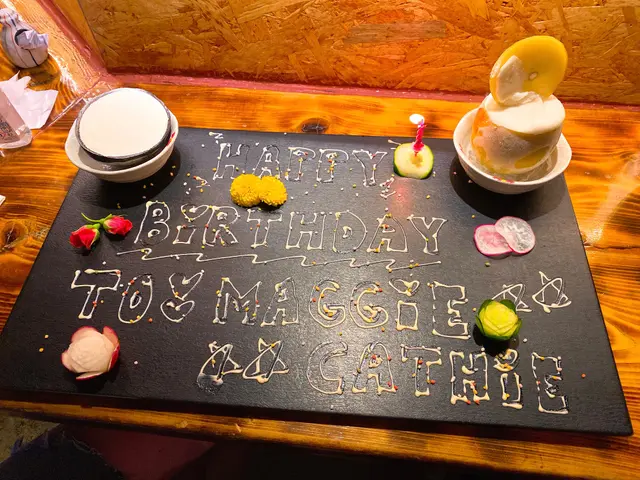 HAPPY
BIRTHDAY
TO MAGGIE
CATHIE